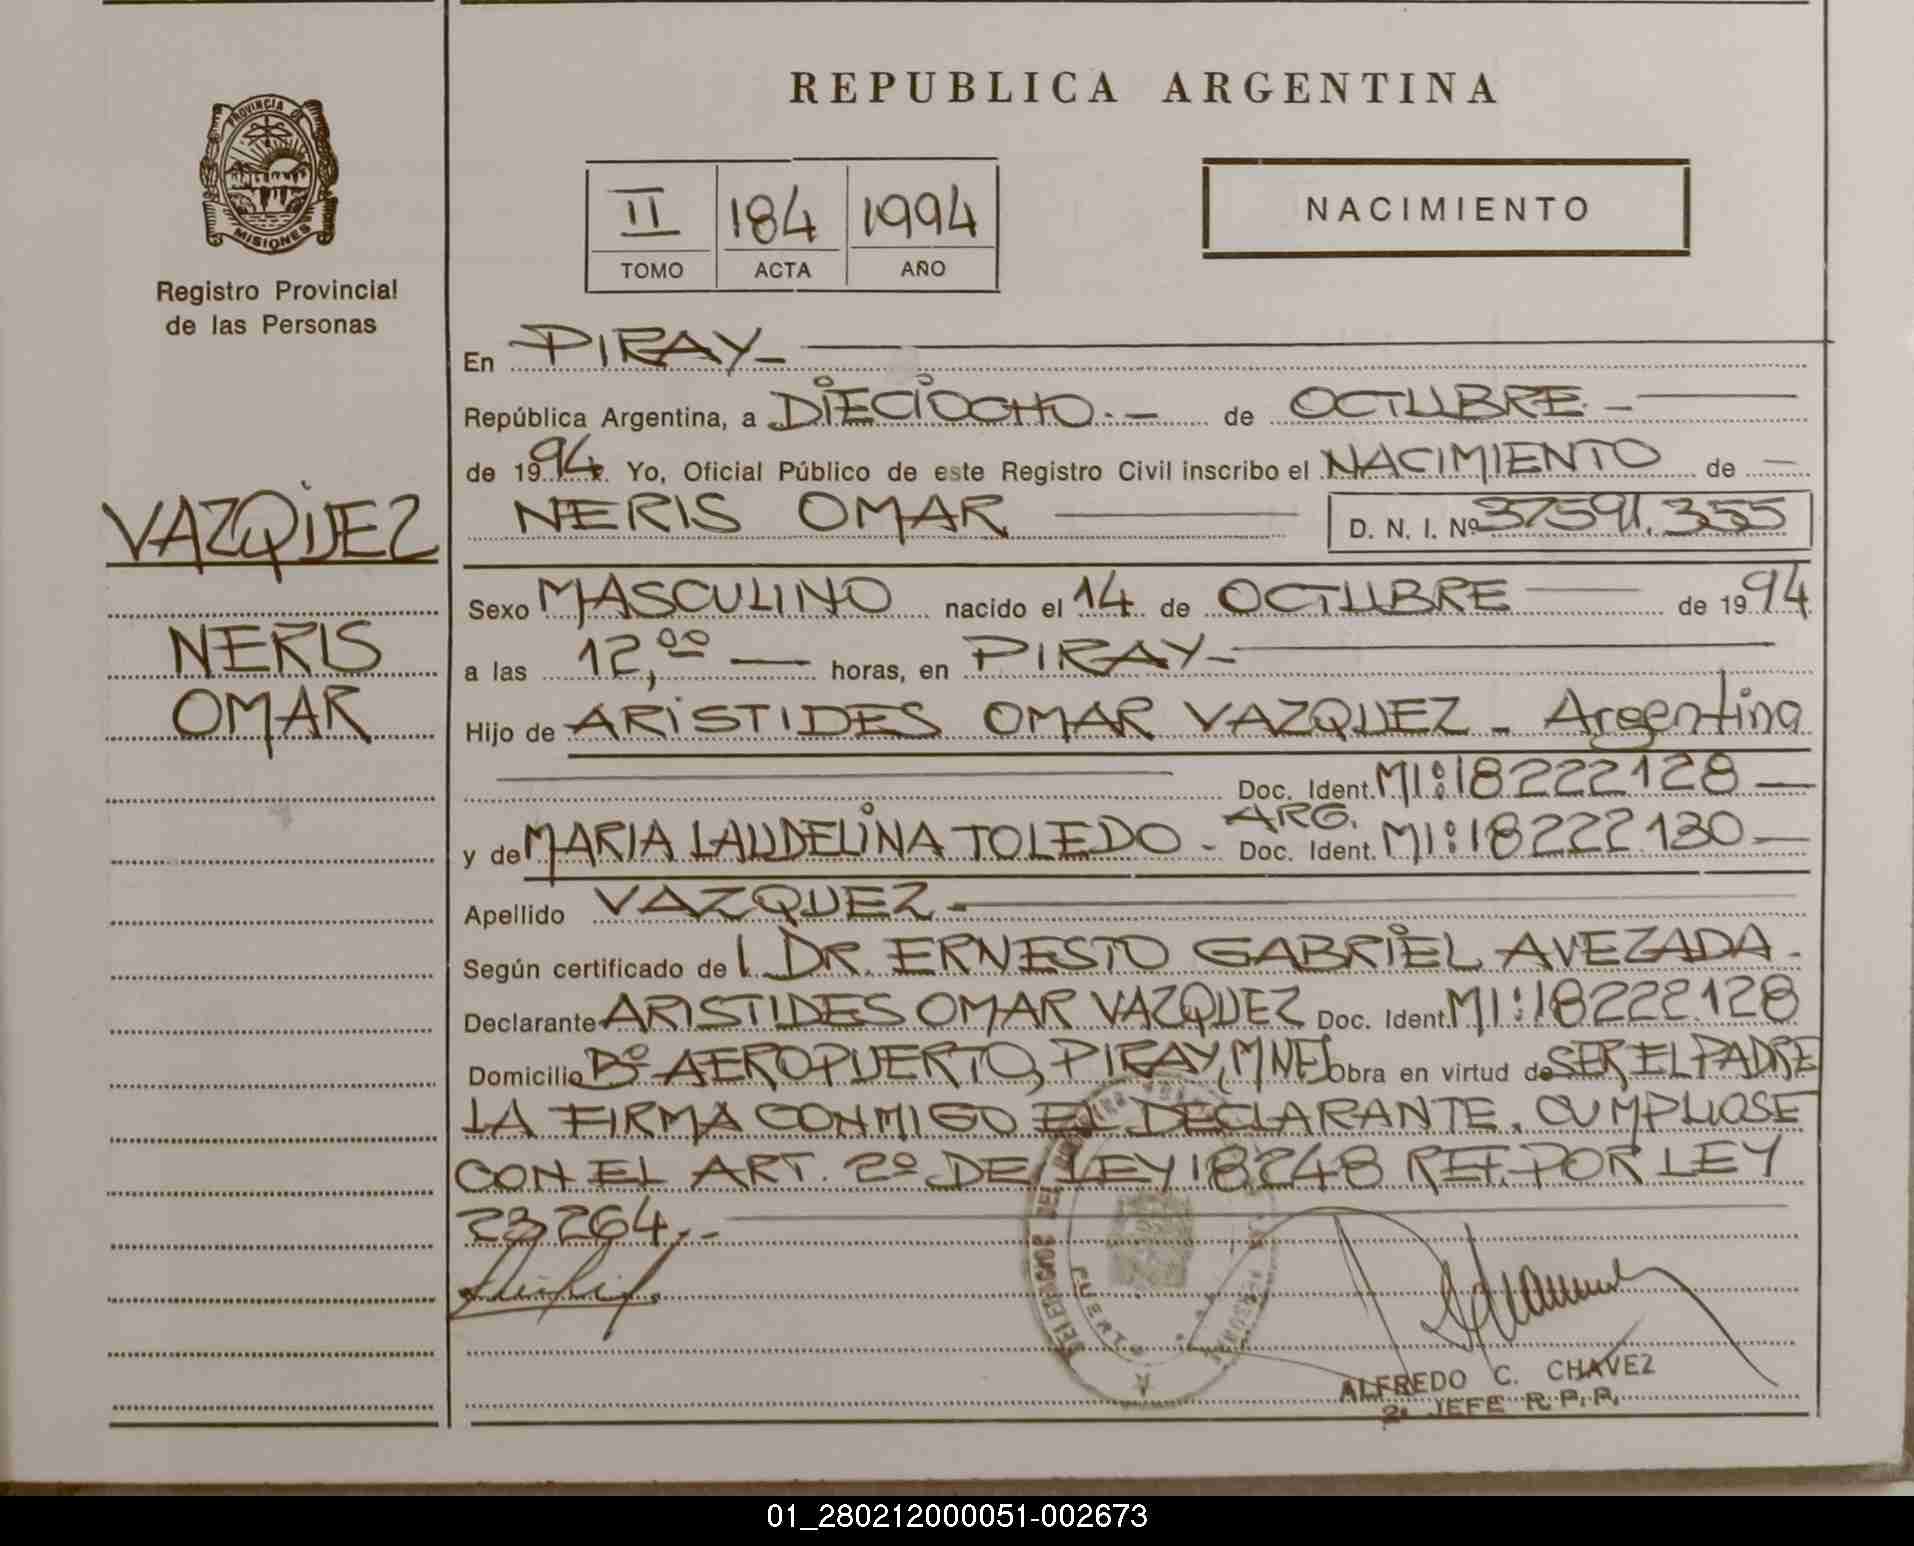 PROVINCIA DE
MISIONES
Registro Provincial
de las Personas
VAZQUEZ
NERIS
OMAR
REPUBLICA ARGENTINA
II 184 1994
TOMO ACTA AÑO
NACIMIENTO
En PIRAY -
República Argentina, a DIECIOCHO.- de OCTUBRE. -
de 1994. Yo, Oficial Público de este Registro Civil inscribo el NACIMIENTO de -
NERIS OMAR D. N. I. Nº 37591.355
Sexo MASCULINO nacido el 14 de OCTUBRE de 1994
a las 12,00 horas, en PIRAY -
Hijo de ARISTIDES OMAR VAZQUEZ - Argentina
Doc. Ident. MI:18222128 -
y de MARIA LAUDELINA TOLEDO - ARG. Doc. Ident. MI:18222.130 -
Apellido VAZQUEZ -
Según certificado de l DR. ERNESTO GABRIEL AVEZADA -
Declarante ARISTIDES OMAR VAZQUEZ Doc. Ident. MI:18222.128
Domicilio Bº AEROPUERTO, PIRAY, MNES obra en virtud de SER EL PADRE
LA FIRMA CONMIGO EL DECLARANTE. CUMPLIOSE
CON EL ART. 2º DE LEY 18248 REF. POR LEY
23264.-
ALFREDO C. CHAVEZ
2º JEFE R.P.P.
01_280212000051-002673